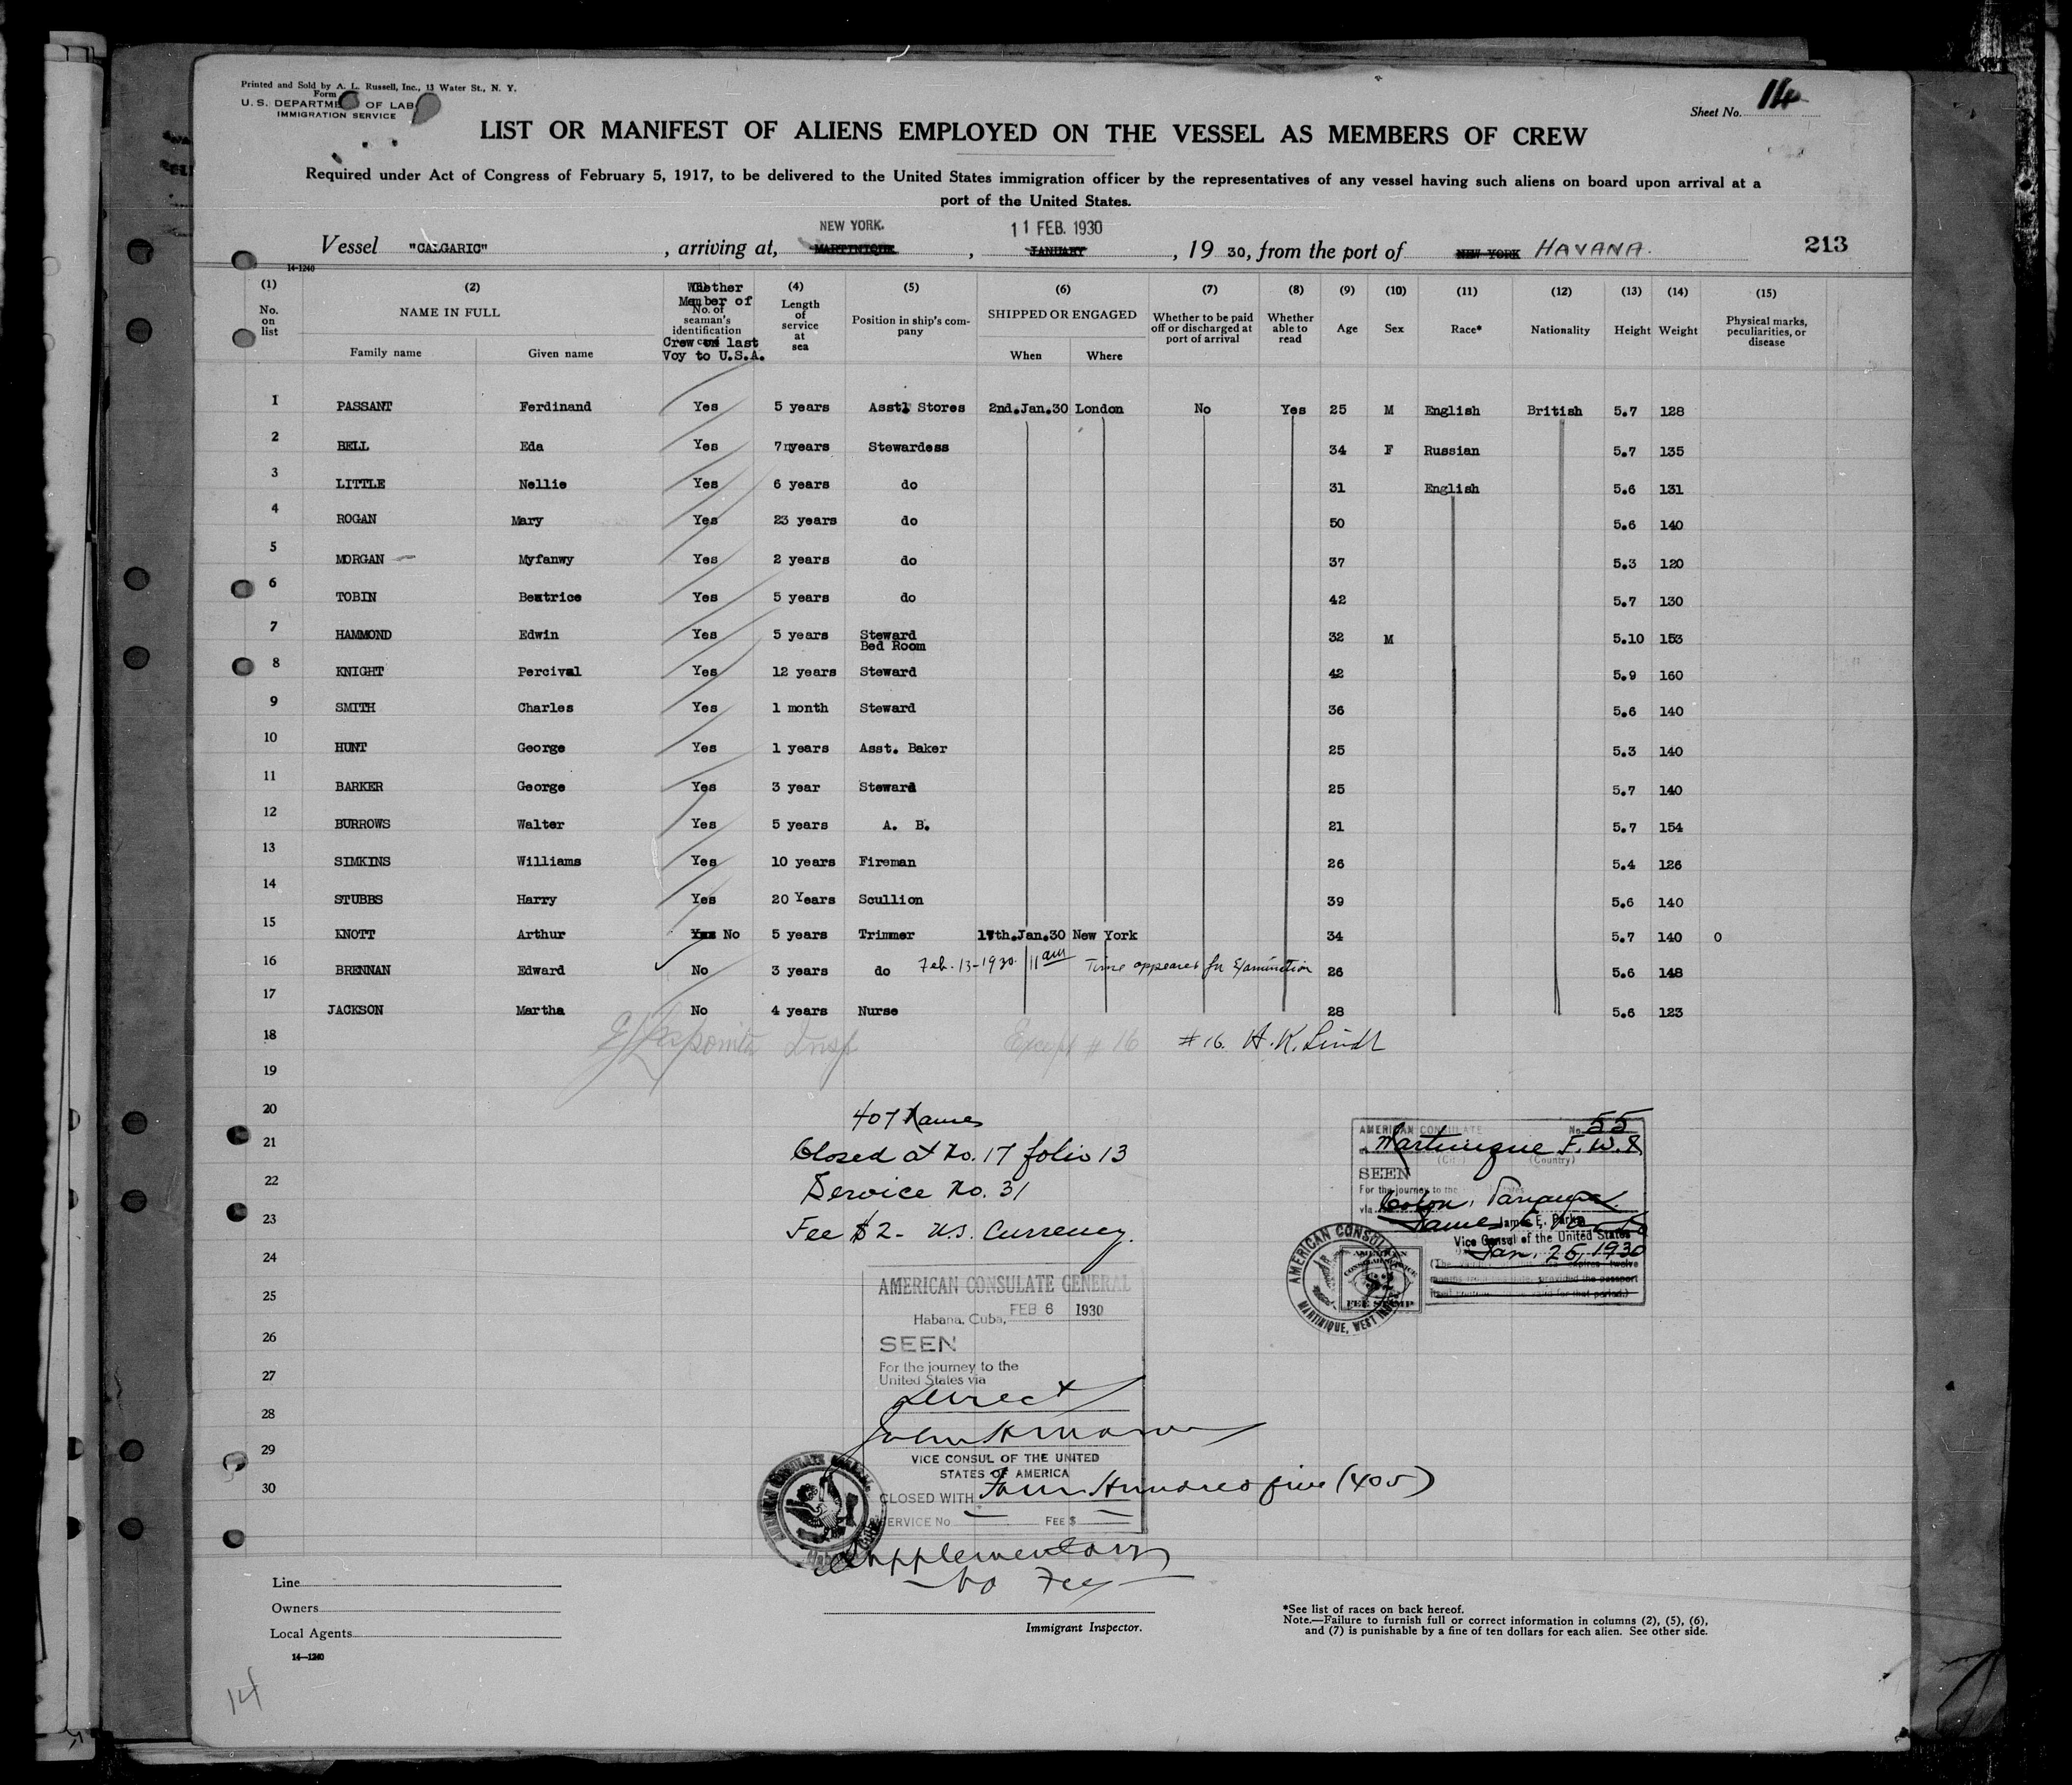 Printed and Sold by A. L. Russell, Inc., 13 Water St., N. Y.
Form
U. S. DEPARTME OF LAB
IMMIGRATION SERVICE
Sheet No. 14
LIST OR MANIFEST OF ALIENS EMPLOYED ON THE VESSEL AS MEMBERS OF CREW
Required under Act of Congress of February 5, 1917, to be delivered to the United States immigration officer by the representatives of any vessel having such aliens on board upon arrival at a
port of the United States.
NEW YORK. 11 FEB. 1930
Vessel "CALGARIC", arriving at, MARTINIQUE, JANUARY, 19 30, from the port of NEW YORK HAVANA. 213
14-1240
(1) (2) (4) (5) (6) (7) (8) (9) (10) (11) (12) (13) (14) (15)
No. on list
NAME IN FULL
Family name Given name
Whether Member of Crew on last Voy to U.S.A.
No. of seaman's identification card
Length of service at sea
Position in ship's company
SHIPPED OR ENGAGED
When Where
Whether to be paid off or discharged at port of arrival
Whether able to read
Age Sex Race* Nationality Height Weight
Physical marks, peculiarities, or disease
1 PASSANT Ferdinand Yes 5 years Asst. Stores 2nd.Jan.30 London No Yes 25 M English British 5.7 128
2 BELL Eda Yes 7 years Stewardess 34 F Russian 5.7 135
3 LITTLE Nellie Yes 6 years do 31 English 5.6 131
4 ROGAN Mary Yes 23 years do 50 5.6 140
5 MORGAN Myfanwy Yes 2 years do 37 5.3 120
6 TOBIN Beatrice Yes 5 years do 42 5.7 130
7 HAMMOND Edwin Yes 5 years Steward 32 M 5.10 153
Bed Room
8 KNIGHT Percival Yes 12 years Steward 42 5.9 160
9 SMITH Charles Yes 1 month Steward 36 5.6 140
10 HUNT George Yes 1 years Asst. Baker 25 5.3 140
11 BARKER George Yes 3 year Steward 25 5.7 140
12 BURROWS Walter Yes 5 years A. B. 21 5.7 154
13 SIMKINS Williams Yes 10 years Fireman 26 5.4 126
14 STUBBS Harry Yes 20 Years Scullion 39 5.6 140
15 KNOTT Arthur Yes No 5 years Trimmer 17th.Jan.30 New York 34 5.7 140 0
16 BRENNAN Edward No 3 years do Feb. 13-1930 11 am Time appeared for Examination 26 5.6 148
17 JACKSON Martha No 4 years Nurse 28 5.6 123
18 Insp Except # 16 #16. H.K. Lindt
19
20
21
22
23
24
25
26
27
28
29
30
407 Names
Closed at No. 17 folio 13
Service No. 31
Fee $2 - U.S. Currency.
AMERICAN CONSULATE No. 55
Martinique F.W.I.
(City) (Country)
SEEN
For the journey to the States
via Colon, Panama
James E. Parks
Vice Consul of the United States
Jan. 26, 1930
AMERICAN CONSULATE
MARTINIQUE, WEST INDIES
AMERICAN
$2
FEE STAMP
AMERICAN CONSULATE GENERAL
Habana, Cuba, FEB 6 1930
SEEN
For the journey to the
United States via
Direct
VICE CONSUL OF THE UNITED
STATES OF AMERICA
CLOSED WITH Four Hundred five (405)
SERVICE No. FEE $
Supplementary
No Fee
Line
Owners
Local Agents
14-1240
Immigrant Inspector.
*See list of races on back hereof.
Note.—Failure to furnish full or correct information in columns (2), (5), (6),
and (7) is punishable by a fine of ten dollars for each alien. See other side.
14